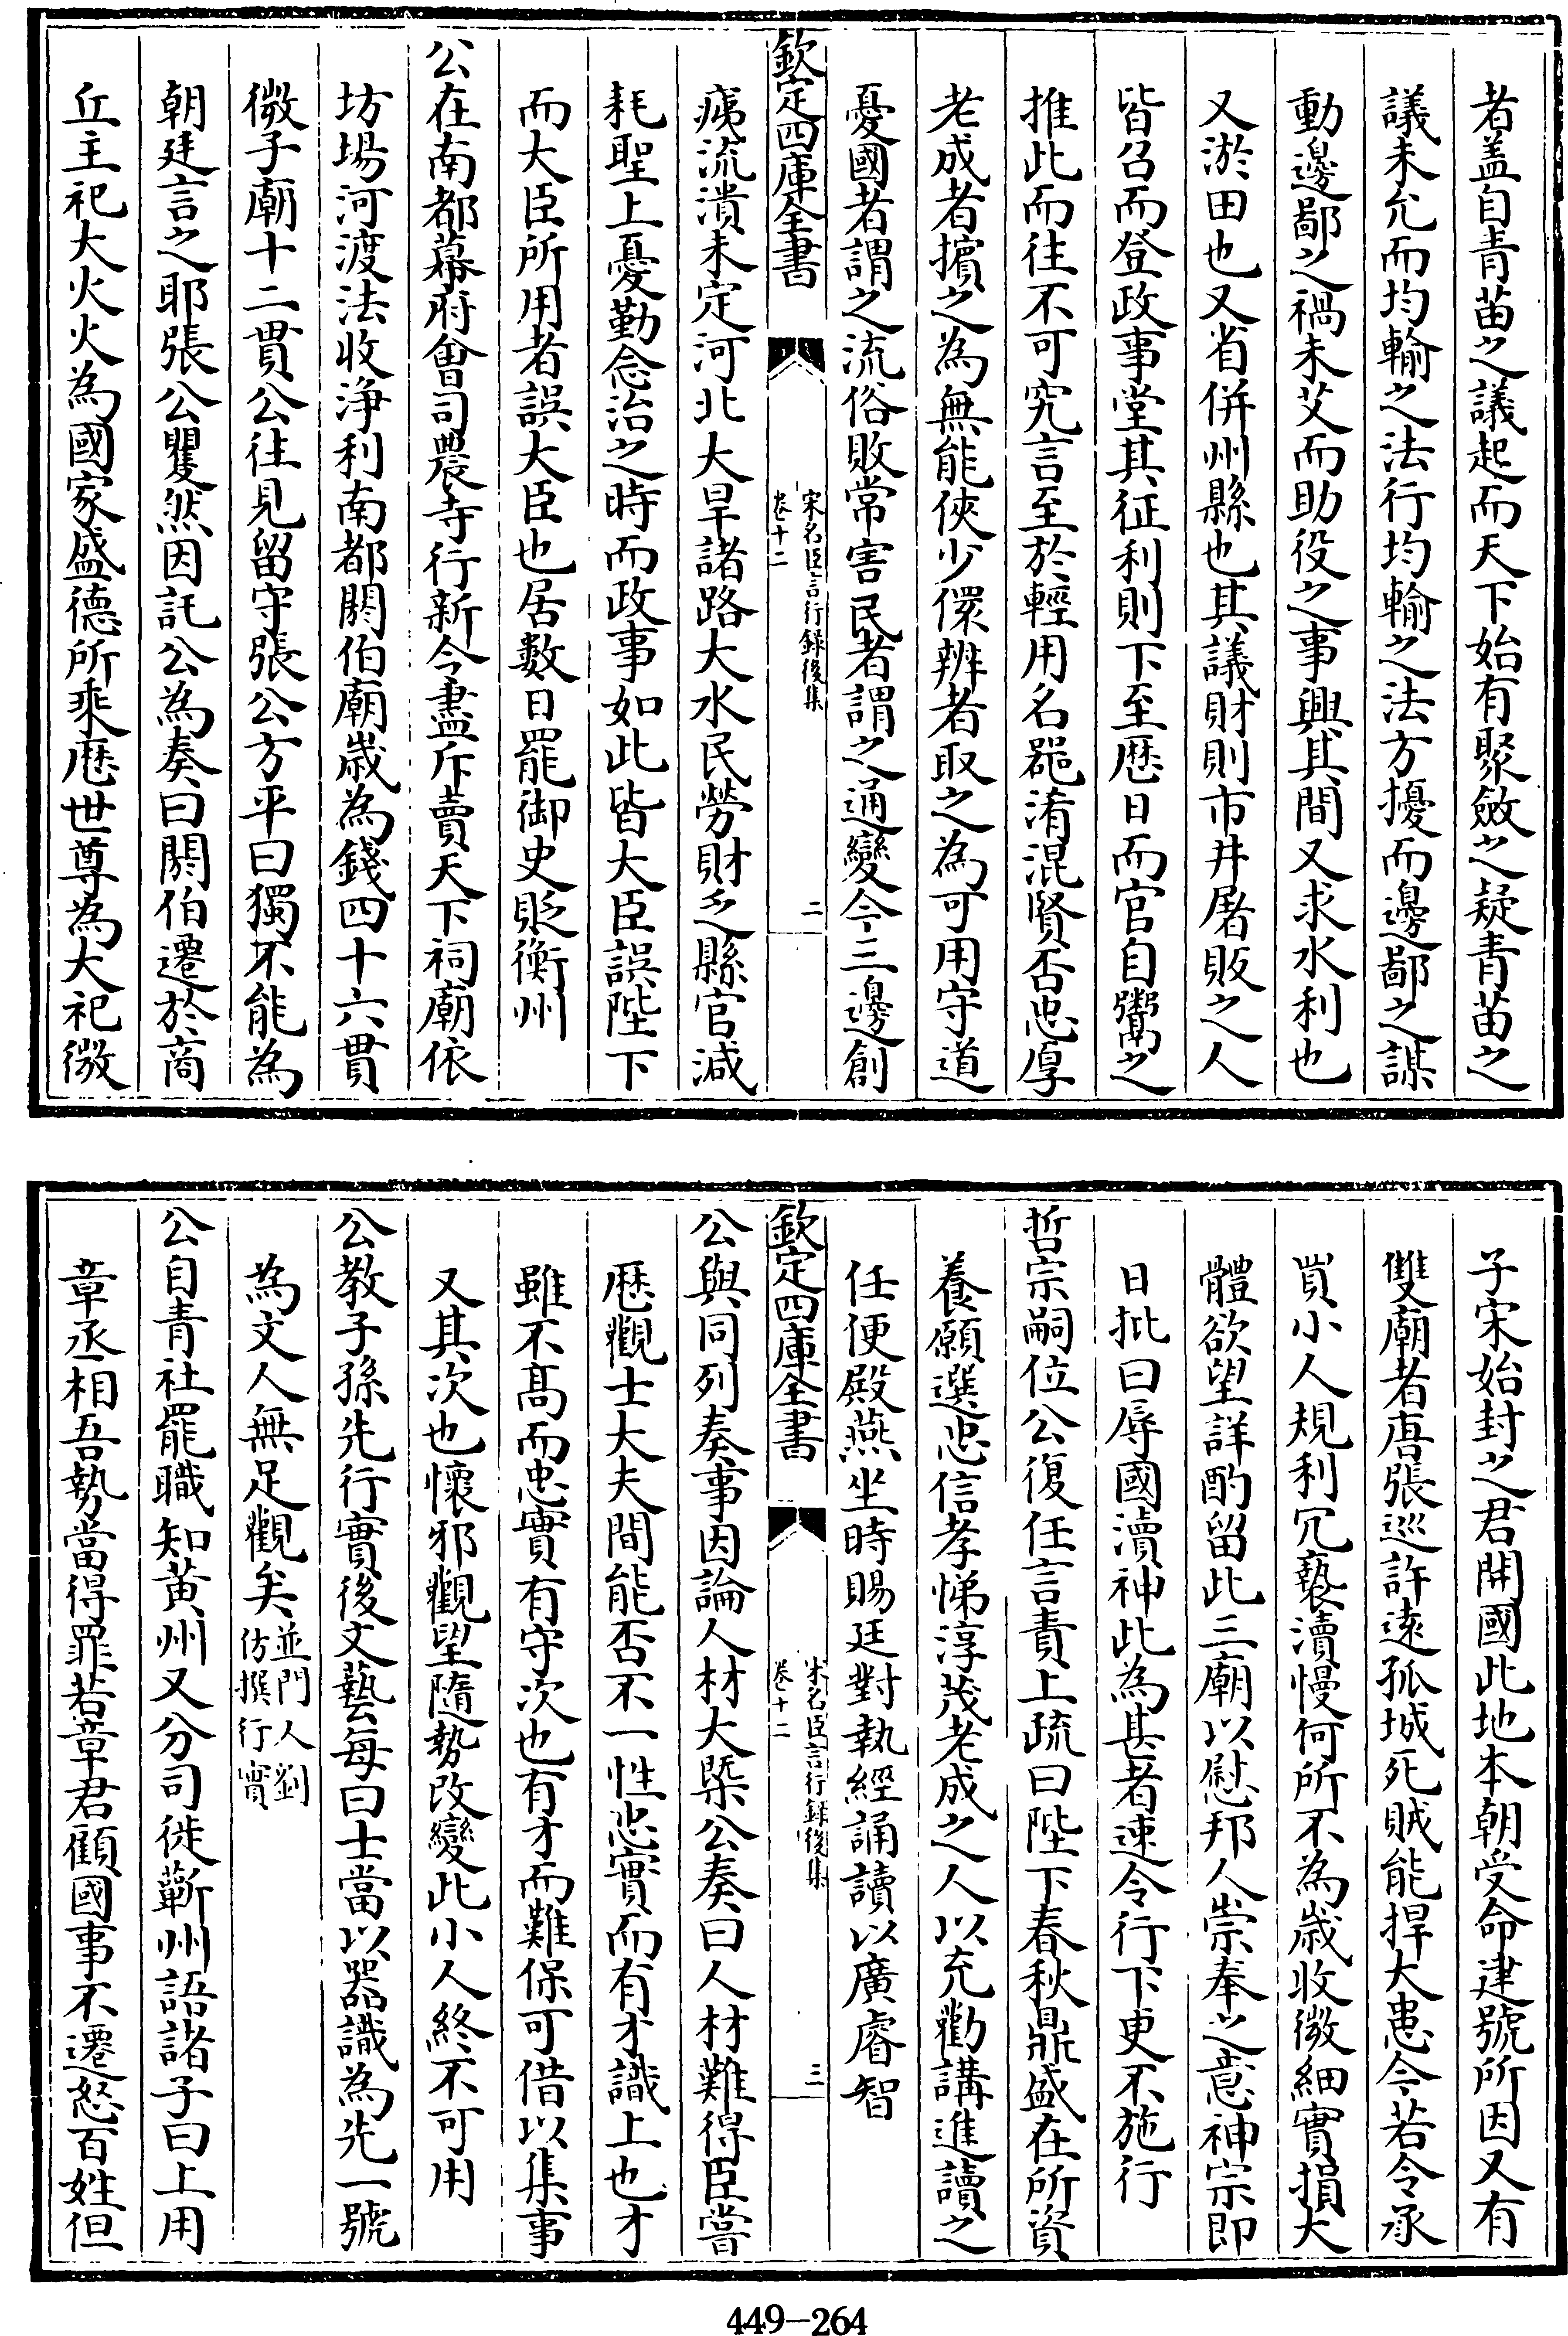 者盖自青苗之議起而天下始有聚斂之疑青苗之
議未允而均輸之法行均輸之法方擾而邊鄙之謀
動邊鄙之禍未艾而助役之事興其間又求水利也
又淤田也又省併州縣也其議財則市井屠販之人
皆召而登政事堂其征利則下至厯日而官自鬻之
推此而往不可究言至於輕用名噐淆混賢否忠厚
老成者擯之為無能俠少儇辨者取之為可用守道
憂國者謂之流俗敗常害民者謂之通變今三邊創
欽定四庫全書
宋名臣言行録後集
卷十二
二
痍流潰未定河北大旱諸路大水民勞財乏縣官減
耗聖上憂勤念治之時而政事如此皆大臣誤陛下
而大臣所用者誤大臣也居數日罷御史貶衡州
公在南都幕府會司農寺行新令盡斥賣天下祠廟依
坊場河渡法收浄利南都閼伯廟歳為錢四十六貫
微子廟十二貫公往見留守張公方平曰獨不能為
朝廷言之耶張公瞿然因託公為奏曰閼伯遷於商
丘主祀大火火為國家盛德所乘厯世尊為大祀微
子宋始封之君開國此地本朝受命建號所因又有
雙廟者唐張巡許遠孤城死賊能捍大患今若令承
買小人規利冗䙝瀆慢何所不為歳收微細實損大
體欲望詳酌留此三廟以慰邦人崇奉之意神宗即
日批曰辱國瀆神此為甚者速令行下更不施行
哲宗嗣位公復任言責上疏曰陛下春秋鼎盛在所資
養願選忠信孝悌淳茂老成之人以充勸講進讀之
任便殿燕坐時賜廷對執經誦讀以廣睿智
欽定四庫全書
宋名臣言行録後集
卷十二
三
公與同列奏事因論人材大槩公奏曰人材難得臣嘗
厯觀士大夫間能否不一性忠實而有才識上也才
雖不髙而忠實有守次也有才而難保可借以集事
又其次也懷邪觀望隨勢改變此小人終不可用
公教子孫先行實後文藝每曰士當以器識為先一號
為文人無足觀矣並門人劉
仿撰行實
公自青社罷職知黄州又分司徙蘄州語諸子曰上用
章丞相吾勢當得罪若章君顧國事不遷怒百姓但
449-264